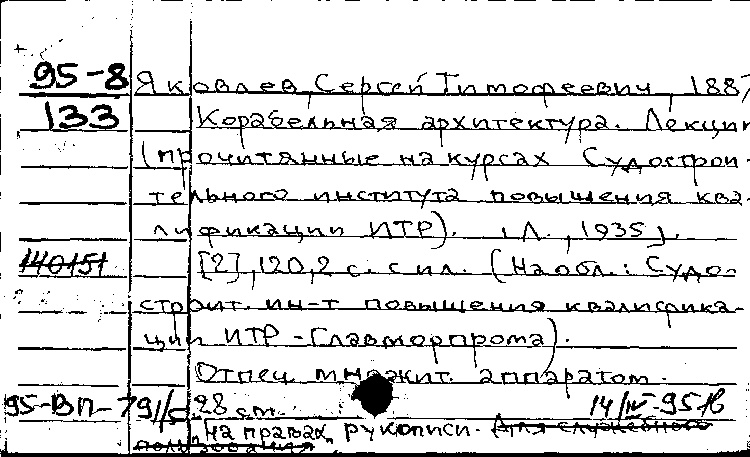 95-8 Яковлев, Сергей Тимофеевич, 188
133 Корабельная архитектура. Лекции
(прочитанные на курсах Судострои-
тельного института повышения ква-
лификации ИТР). [Л., 1935].
140151 [2], 120, 2 с. с ил. (На обл.: Судо-
строит. ин-т повышения квалифика-
ции ИТР - Главморпрома).
Отпеч. множит. аппаратом.
95-ВП-791/с 28 см. 14/IV-95
"На правах" рукописи. Для служебного
пользования